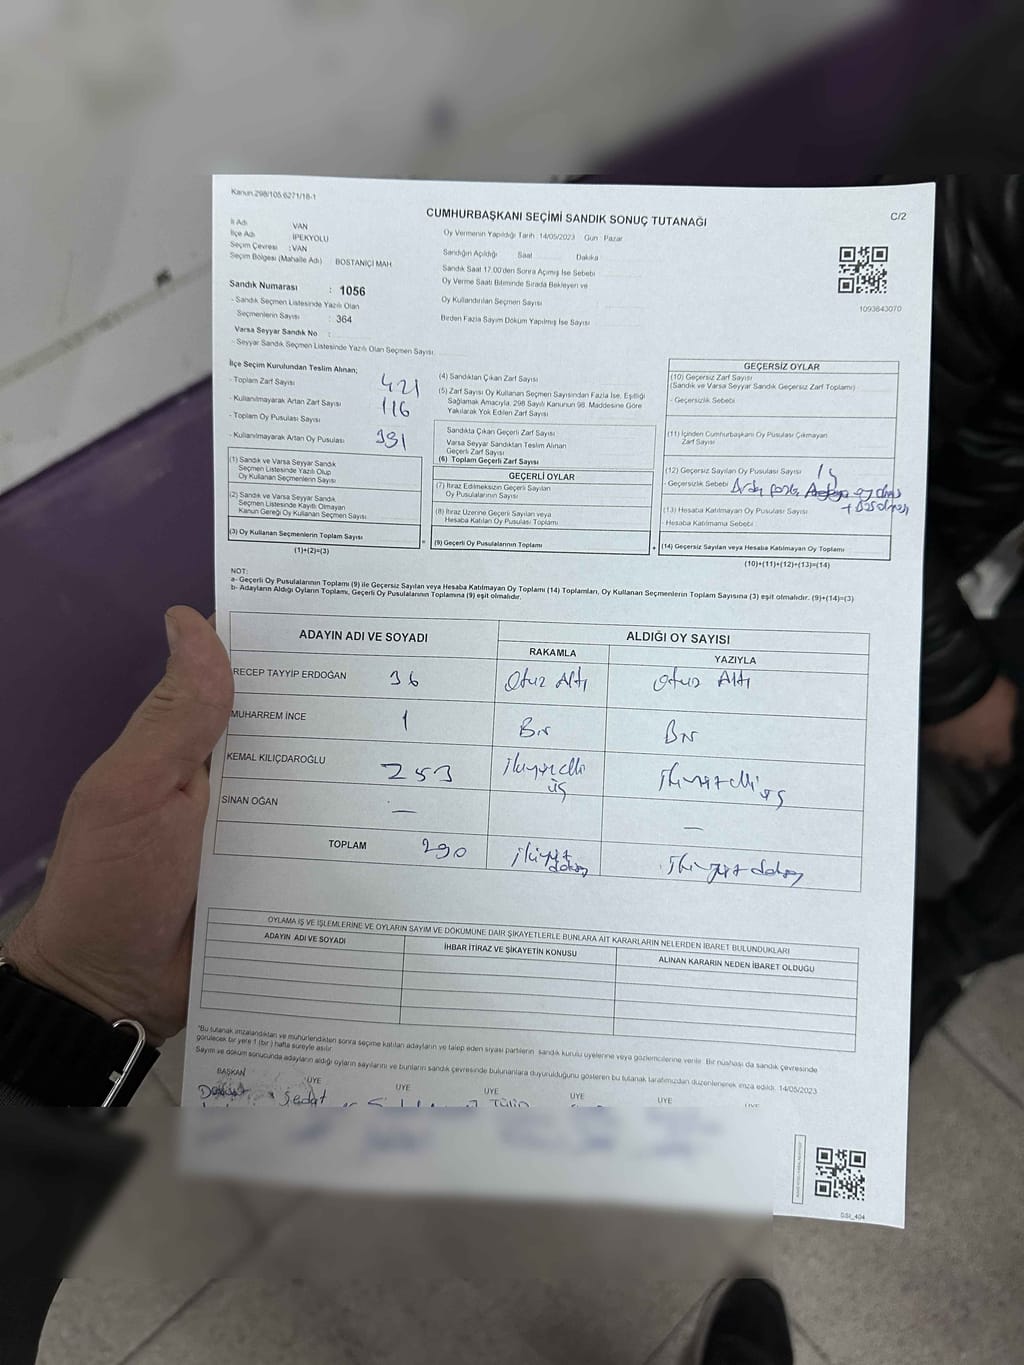 Kanun 298/105,6271/18-1
CUMHURBAŞKANI SEÇİMİ SANDIK SONUÇ TUTANAĞI
C/2
İl Adı VAN
İlçe Adı İPEKYOLU
Seçim Çevresi : VAN
Seçim Bölgesi (Mahalle Adı) BOSTANİÇİ MAH
Oy Vermenin Yapıldığı Tarih :14/05/2023 Gün : Pazar
Sandığın Açıldığı Saat Dakika
Sandık Saat 17.00'den Sonra Açılmış İse Sebebi
Oy Verme Saati Bitiminde Sırada Bekleyen ve
Oy Kullandırılan Seçmen Sayısı
Birden Fazla Sayım Döküm Yapılmış İse Sayısı
1093643070
Sandık Numarası : 1056
- Sandık Seçmen Listesinde Yazılı Olan
Seçmenlerin Sayısı : 364
Varsa Seyyar Sandık No :
- Seyyar Sandık Seçmen Listesinde Yazılı Olan Seçmen Sayısı
İlçe Seçim Kurulundan Teslim Alınan;
- Toplam Zarf Sayısı 421
- Kullanılmayarak Artan Zarf Sayısı 116
- Toplam Oy Pusulası Sayısı
- Kullanılmayarak Artan Oy Pusulası
(1) Sandık ve Varsa Seyyar Sandık
Seçmen Listesinde Yazılı Olup
Oy Kullanan Seçmenlerin Sayısı
(2) Sandık ve Varsa Seyyar Sandık
Seçmen Listesinde Kayıtlı Olmayan
Kanun Gereği Oy Kullanan Seçmen Sayısı
(3) Oy Kullanan Seçmenlerin Toplam Sayısı
(1)+(2)=(3)
=
(4) Sandıktan Çıkan Zarf Sayısı
(5) Zarf Sayısı Oy Kullanan Seçmen Sayısından Fazla İse, Eşitliği
Sağlamak Amacıyla, 298 Sayılı Kanunun 98. Maddesine Göre
Yakılarak Yok Edilen Zarf Sayısı
Sandıkta Çıkan Geçerli Zarf Sayısı
Varsa Seyyar Sandıktan Teslim Alınan
Geçerli Zarf Sayısı
(6) Toplam Geçerli Zarf Sayısı
GEÇERLİ OYLAR
(7) İtiraz Edilmeksizin Geçerli Sayılan
Oy Pusulalarının Sayısı
(8) İtiraz Üzerine Geçerli Sayılan veya
Hesaba Katılan Oy Pusulası Toplamı
(9) Geçerli Oy Pusulalarının Toplamı
+
GEÇERSİZ OYLAR
(10) Geçersiz Zarf Sayısı
(Sandık ve Varsa Seyyar Sandık Geçersiz Zarf Toplamı)
- Geçersizlik Sebebi
(11) İçinden Cumhurbaşkanı Oy Pusulası Çıkmayan
Zarf Sayısı
(12) Geçersiz Sayılan Oy Pusulası Sayısı 15
- Geçersizlik Sebebi
(13) Hesaba Katılmayan Oy Pusulası Sayısı
- Hesaba Katılmama Sebebi
(14) Geçersiz Sayılan veya Hesaba Katılmayan Oy Toplamı
(10)+(11)+(12)+(13)=(14)
NOT:
a- Geçerli Oy Pusulalarının Toplamı (9) ile Geçersiz Sayılan veya Hesaba Katılmayan Oy Toplamı (14) Toplamları, Oy Kullanan Seçmenlerin Toplam Sayısına (3) eşit olmalıdır. (9)+(14)=(3)
b- Adayların Aldığı Oyların Toplamı, Geçerli Oy Pusulalarının Toplamına (9) eşit olmalıdır.
ADAYIN ADI VE SOYADI ALDIĞI OY SAYISI
RAKAMLA YAZIYLA
RECEP TAYYİP ERDOĞAN 36 Otuz Altı Otuz Altı
MUHARREM İNCE 1 Bir Bir
KEMAL KILIÇDAROĞLU 253 ikiyüzelli üç ikiyüzelli üç
SİNAN OĞAN — —
TOPLAM 290 ikiyüz doksan ikiyüz doksan
OYLAMA İŞ VE İŞLEMLERİNE VE OYLARIN SAYIM VE DÖKÜMÜNE DAİR ŞİKAYETLERLE BUNLARA AİT KARARLARIN NELERDEN İBARET BULUNDUKLARI
ADAYIN ADI VE SOYADI İHBAR İTİRAZ VE ŞİKAYETİN KONUSU ALINAN KARARIN NEDEN İBARET OLDUĞU
*Bu tutanak imzalandıktan ve mühürlendikten sonra seçime katılan adayların ve talep eden siyasi partilerin sandık kurulu üyelerine veya gözlemcilerine verilir. Bir nüshası da sandık çevresinde
görülecek bir yere 1 (bir) hafta süreyle asılır.
Sayım ve döküm sonucunda adayların aldığı oyların sayılarını ve bunların sandık çevresinde bulunanlara duyurulduğunu gösteren bu tutanak tarafımızdan düzenlenerek imza edildi. 14/05/2023
BAŞKAN ÜYE ÜYE ÜYE ÜYE ÜYE ÜYE
Sedat Tülin
SSI_404